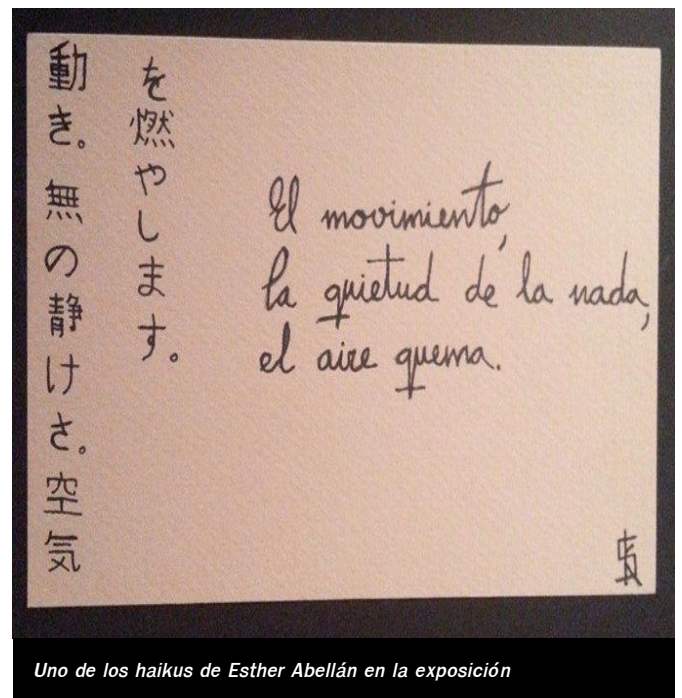 動き。無の静けさ。空気
を燃やします。
El movimiento,
la quietud de la nada,
el aire quema.
Uno de los haikus de Esther Abellán en la exposición